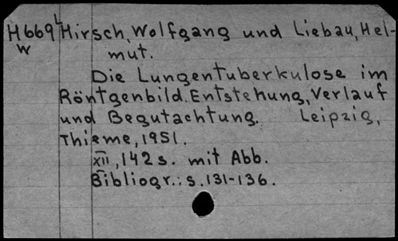 H669L Hirsch, Wolfgang und Liebau, Hel-
w mut.
Die Lungentuberkulose im
Röntgenbild. Entstehung, Verlauf
und Begutachtung. Leipzig,
Thieme, 1951.
XII, 142 s. mit Abb.
Bibliogr.: s. 131-136.